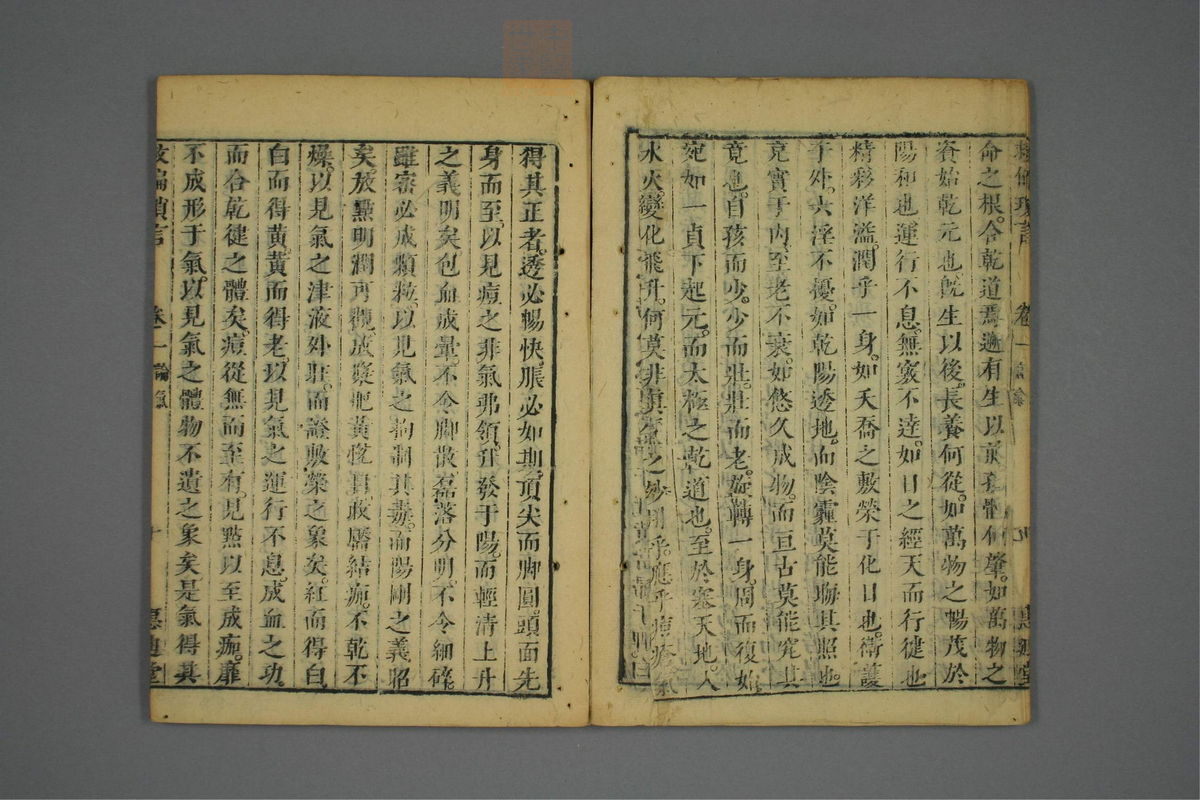 命之根。合乾道焉。邇有生以前。秉體何肇。如萬物之
資始乾元也。既生以後。長養何從。如萬物之暢茂於
陽和也。運行不息。無竅不達。如日之經天而行健也。
精彩洋溢。潤乎一身。如夭喬之敷榮于化日也。衛護
于外。六淫不擾。如乾陽透地。而陰霾莫能翳其照也。
克實于内。至老不衰。如悠久成物。而亘古莫能究其
竟也。自孩而少。少而壯。壯而老。旋轉一身。周而復始。
宛如一貞下起元。而太極之乾道也。至於塞天地。人
水火。變化飛升。何莫非真之妙用乎。應乎痘瘡氣
得其正者。透必暢快。脹必如期。頂尖而脚圓。頭面先
身而至。以見痘之非氣弗領。升發于陽。而輕清上升
之義明矣。包血成暈。不令脚散。磊落分明。不令細碎。
雖密必成顆粒。以見氣之拘制其毒。而陽剛之義昭
矣。放點明潤可觀。放漿肥黄。收靨結痂。不乾不
燥。以見氣之津液外莊。而證敷榮之象矣。紅而得白。
白而得黄。黄而得老。以見氣之運行不息。成血之功。
而合乾健之體矣。痘從無而至有。見點以至成痂。靡
不成形于氣。以見氣之體物不遺之象矣。是氣得其
救偏瑣言 卷一 論氣 十 惠迪堂